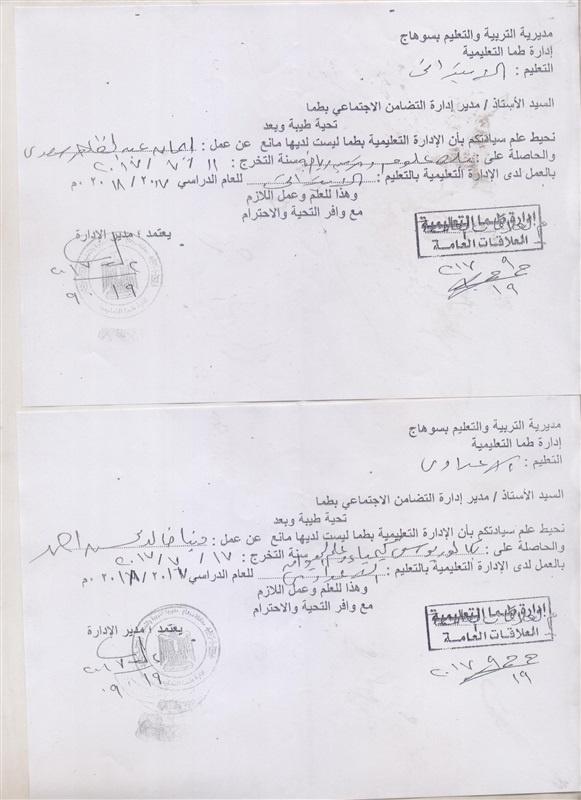 مديرية التربية والتعليم بسوهاج
إدارة طما التعليمية
التعليم : الابتدائى
السيد الأستاذ / مدير إدارة التضامن الاجتماعي بطما
تحية طيبة وبعد
نحيط علم سيادتكم بأن الإدارة التعليمية بطما ليست لديها مانع عن عمل :
والحاصلة على : سنة التخرج :
بالعمل لدى الإدارة التعليمية بالتعليم : الابتدائى للعام الدراسي ٢٠١٧ / ٢٠١٨ م٠
وهذا للعلم وعمل اللازم
مع وافر التحية والاحترام
يعتمد ؛ مدير الإدارة
إدارة طما التعليمية
العلاقات العامة
٢٠١٧
٩
١٩
مديرية التربية والتعليم بسوهاج
إدارة طما التعليمية
التعليم : الاعدادى
السيد الأستاذ / مدير إدارة التضامن الاجتماعي بطما
تحية طيبة وبعد
نحيط علم سيادتكم بأن الإدارة التعليمية بطما ليست لديها مانع عن عمل : دينا خالد احمد
والحاصلة على : بكالوريوس سنة التخرج : ١٧ / ٧ / ٢٠١٧
بالعمل لدى الإدارة التعليمية بالتعليم : الاعدادى للعام الدراسي ٢٠١٧ / ٢٠١٨ م٠
وهذا للعلم وعمل اللازم
مع وافر التحية والاحترام
يعتمد ؛ مدير الإدارة
إدارة طما التعليمية
العلاقات العامة
٢٠١٧
٩
١٩